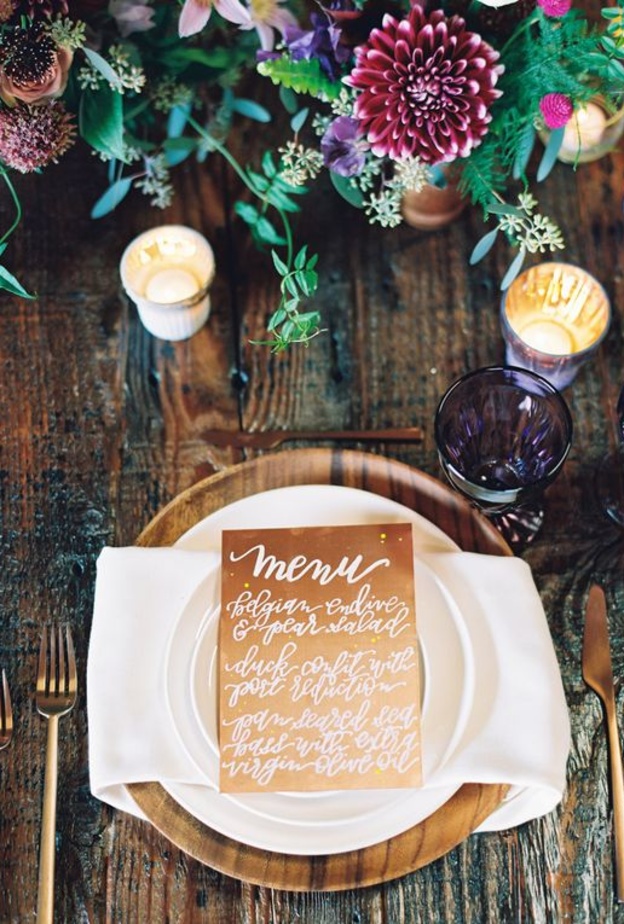 menu
belgian endive
& pear salad
duck confit with
port reduction
pan seared sea
bass with extra
virgin olive oil